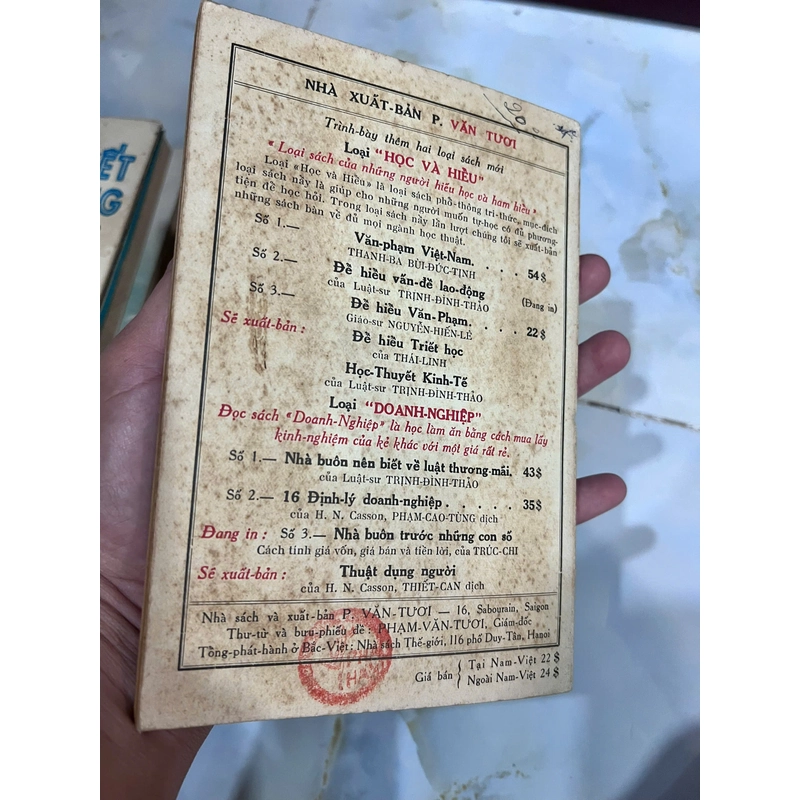 NHÀ XUẤT-BẢN P. VĂN TƯƠI
Trình-bày thêm hai loại sách mới
Loại "HỌC VÀ HIỂU"
« Loại sách của những người hiếu học và ham hiểu »
Loại «Học và Hiểu» là loại sách phổ-thông tri-thức, mục-đích
loại sách nầy là giúp cho những người muốn tự-học có đủ phương-
tiện để học hỏi. Trong loại sách nầy lần lượt chúng tôi sẽ xuất-bản
những sách bàn về đủ mọi ngành học thuật.
Số 1.— Văn-phạm Việt-Nam. . . . . 54 $
THANH-BA BÙI-ĐỨC-TỊNH
Số 2.— Để hiểu vấn-đề lao-động (Đang in)
của Luật-sư TRỊNH-ĐÌNH-THẢO
Số 3.— Để hiểu Văn-Phạm. . . . . 22 $
Giáo-sư NGUYỄN-HIẾN-LÊ
Sẽ xuất-bản :
Để hiểu Triết học
của THÁI-LINH
Học-Thuyết Kinh-Tế
của Luật-sư TRỊNH-ĐÌNH-THẢO
Loại "DOANH-NGHIỆP"
Đọc sách «Doanh-Nghiệp» là học làm ăn bằng cách mua lấy
kinh-nghiệm của kẻ khác với một giá rất rẻ.
Số 1.— Nhà buôn nên biết về luật thương-mãi. 43 $
của Luật-sư TRỊNH-ĐÌNH-THẢO
Số 2.— 16 Định-lý doanh-nghiệp . . . . . 35 $
của H. N. Casson, PHẠM-CAO-TÙNG dịch
Đang in : Số 3.— Nhà buôn trước những con số
Cách tính giá vốn, giá bán và tiền lời, của TRÚC-CHI
Sẽ xuất-bản : Thuật dụng người
của H. N. Casson, THIẾT-CAN dịch
Nhà sách và xuất-bản P. VĂN-TƯƠI — 16, Sabourain, Saigon
Thư-từ và bưu-phiếu đề : PHẠM-VĂN-TƯƠI, Giám-đốc
Tổng-phát-hành ở Bắc-Việt : Nhà sách Thế-giới, 116 phố Duy-Tân, Hanoi
Giá bán { Tại Nam-Việt 22 $
Ngoài Nam-Việt 24 $